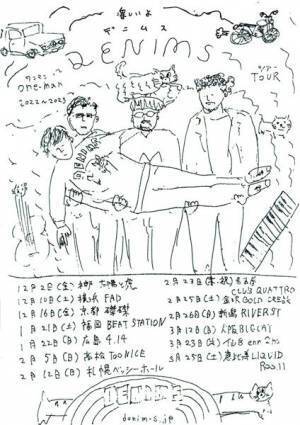 デニムス
DENIMS
ワンマン
one-man
2022〜2023
ツアー
TOUR
12月2日(金)
12月10日(土)横浜 FAD
12月16日(金)京都 磔磔
1月21日(土)福岡 BEAT STATION
1月22日(日)広島 4.14
2月5日(日)高松 TOONICE
2月12日(日)札幌ベッシーホール
2月23日(木・祝)名古屋
CLUB QUATTRO
2月25日(土)金沢 GOLD CREEK
2月26日(日)新潟 RIVERST
3月12日(日)大阪 BIGCAT
3月23日(木)仙台 enn 2nd
3月25日(土)恵比寿 LIQUID
ROOM
DENIMS
denim-s.jp